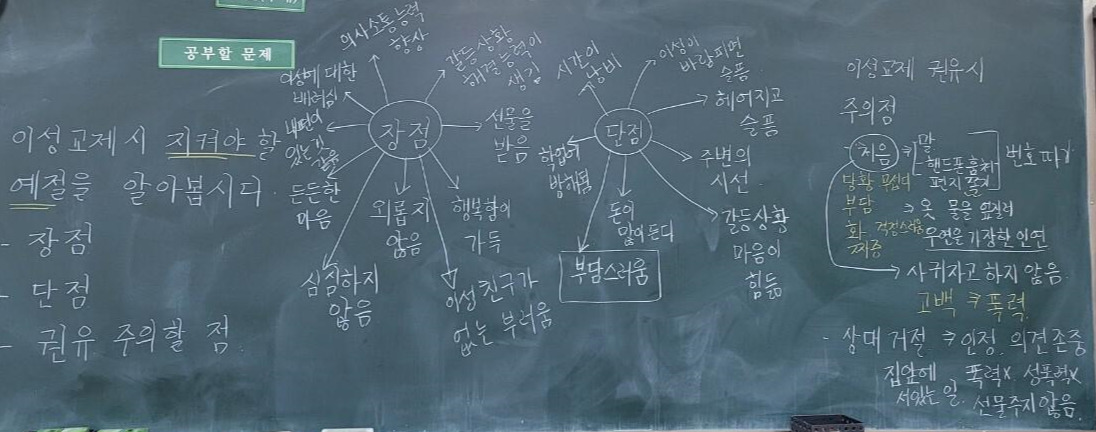 공부할 문제
이성교제시 지켜야 할
예절을 알아봅시다.
- 장점
- 단점
- 권유 주의할 점.
장점
의사소통능력
향상
갈등상황
해결능력이
생김
선물을
받음
행복함이
가득
이성친구가
없는 부러움
외롭지
않음
심심하지
않음
든든한
마음
내편이
있는것
같음
이성에 대한
배려심
단점
시간이
낭비
이성이
바람피면
슬픔.
헤어지고
슬픔
주변의
시선.
갈등상황
마음이
힘듦
돈이
많이 든다
부담스러움
학업에
방해됨
이성교제 권유시
주의점
처음
말
핸드폰훔쳐
편지
번호따기
당황 무섭다
부담
화 걱정스러움
짜증
⇒ 옷 물을 엎질러
우연을 가장한 인연
→ 사귀자고 하지 않음.
고백 ⇒ 폭력
- 상대 거절 ⇒ 인정. 의견존중
집앞에
서있는 일.
폭력x 성폭력x
선물주지않음.